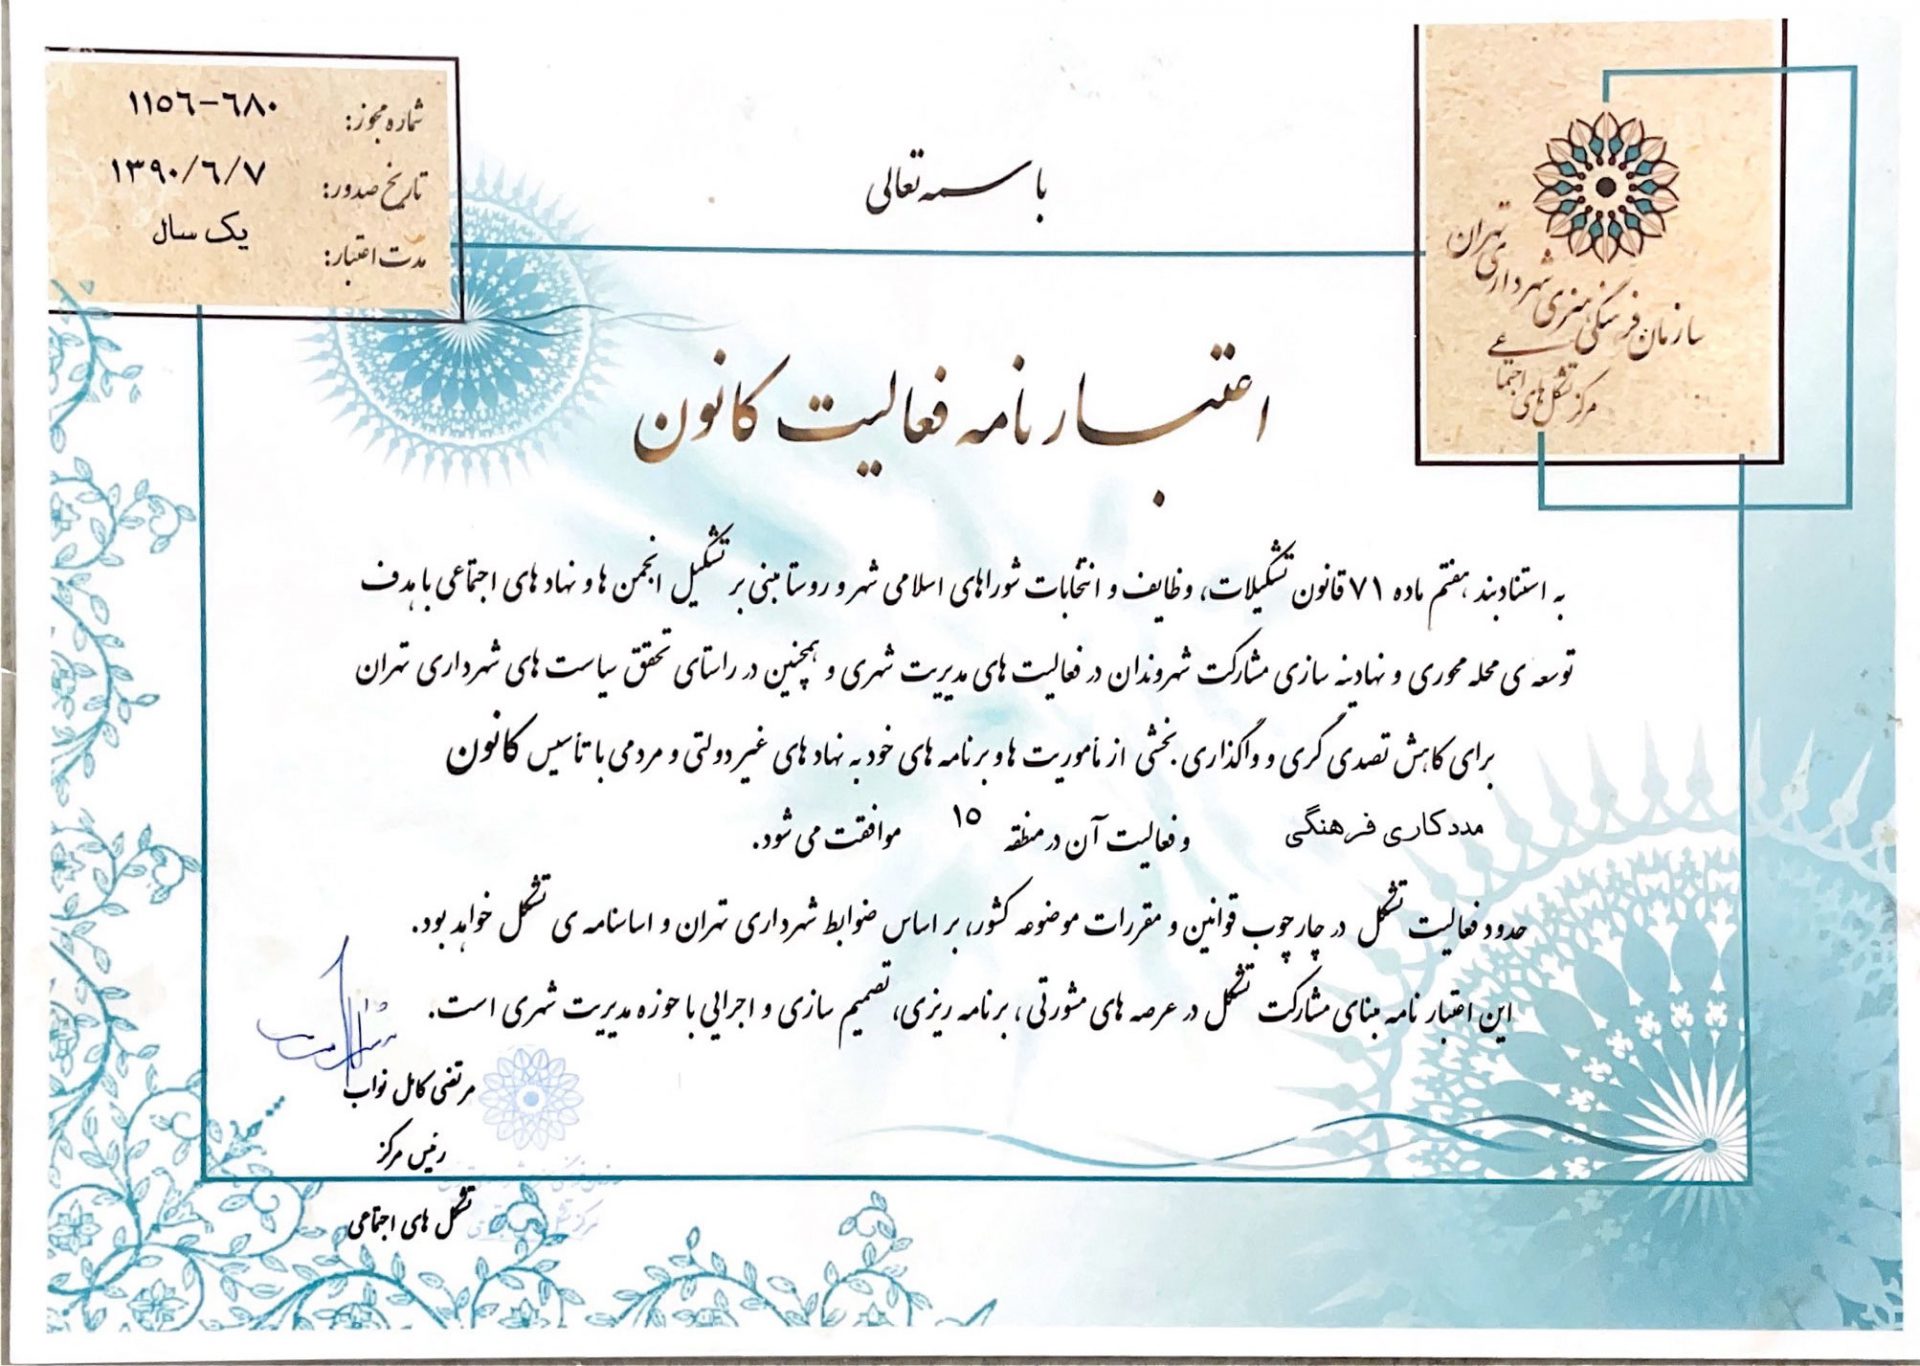 باسمه تعالی
سازمان فرهنگی هنری شهرداری تهران
مرکز تشکل های اجتماعی
شماره مجوز: ۱۱۵۶-۶۸۰
تاریخ صدور: ۱۳۹۰/۶/۷
مدت اعتبار: یک سال
اعتبار نامه فعالیت کانون
به استناد بند هفتم ماده ۷۱ قانون تشکیلات، وظایف و انتخابات شوراهای اسلامی شهر و روستا مبنی بر تشکیل انجمن ها و نهاد های اجتماعی با هدف
توسعه ی محله محوری و نهادینه سازی مشارکت شهروندان در فعالیت های مدیریت شهری و همچنین در راستای تحقق سیاست های شهرداری تهران
برای کاهش تصدی گری و واگذاری بخشی از مأموریت ها و برنامه های خود به نهاد های غیر دولتی و مردمی با تأسیس کانون
مددکاری فرهنگی و فعالیت آن در منطقه ۱۵ موافقت می شود.
حدود فعالیت تشکل در چارچوب قوانین و مقررات موضوعه کشور، بر اساس ضوابط شهرداری تهران و اساسنامه ی تشکل خواهد بود.
این اعتبار نامه مبنای مشارکت تشکل در عرصه های مشورتی، برنامه ریزی، تصمیم سازی و اجرایی با حوزه مدیریت شهری است.
مرتضی کامل نواب
رئیس مرکز
تشکل های اجتماعی